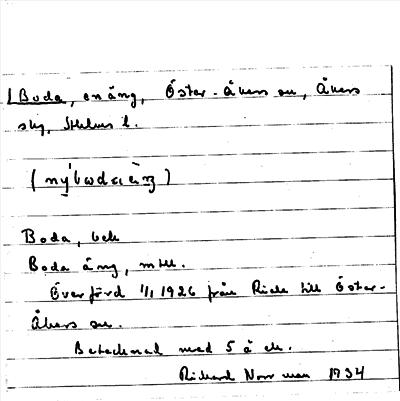 Boda, en äng, Öster-Åkers sn, Åkers
skg, Sthlms l.
Boda, bek
Boda äng, mtl.
Överförd 1/1 1926 från Riala till Öster-
Åkers sn.
Betecknad med 5 å ek.
Rickard Norrman 1934